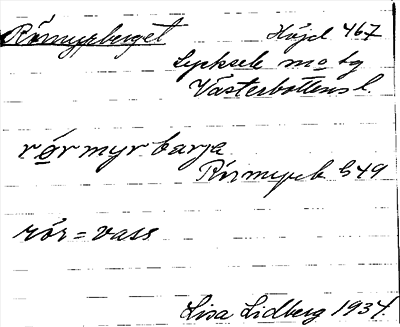 Rörmyrberget Höjd 467
Lycksele m o tg
Västerbottens l.
rörmyrbarja
Rörmyrb. G49
rör = vass
Lisa Lidberg 1934.